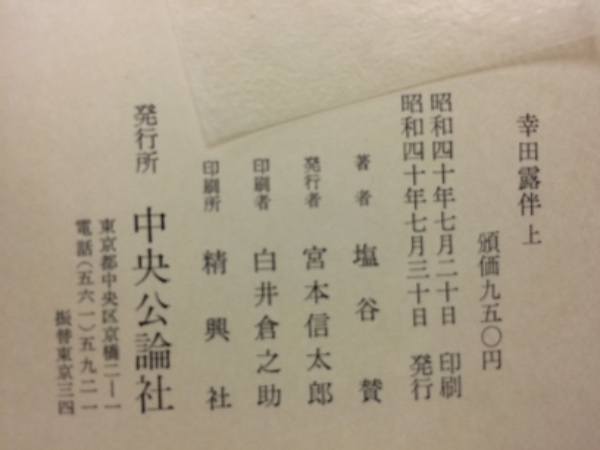 幸田露伴 上
頒価九五〇円
昭和四十年七月二十日 印刷
昭和四十年七月三十日 発行
著者 塩谷賛
発行者 宮本信太郎
印刷者 白井倉之助
印刷所 精興社
発行所 中央公論社
東京都中央区京橋二—一
電話(五六一)五九二一
振替東京三四